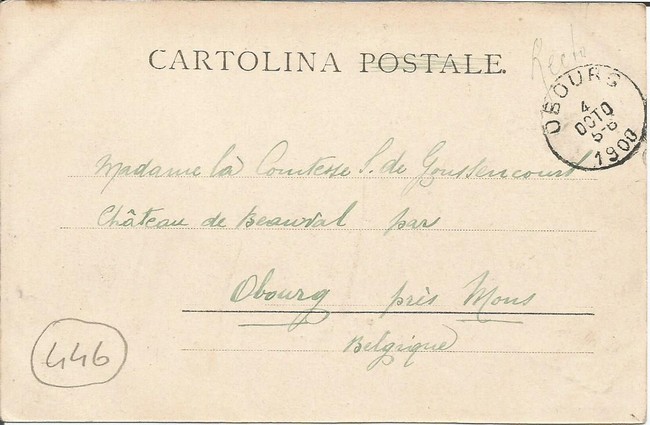 Recto
CARTOLINA POSTALE.
OBOURG
4
OCTO
5-6
1900
Madame la Comtesse S. de Goussencourt
Château de Beauval par
Obourg près Mons
Belgique
446